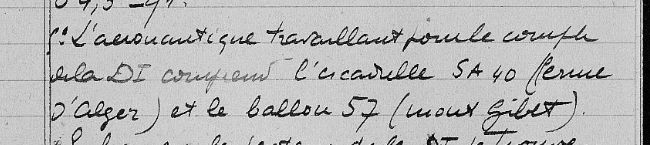 1° L'aéronautique travaillant pour le compte
de la DI comprend l'escadrille SA 40 (ferme
d'Alger) et le ballon 57 (mont Gibet).
de la DI